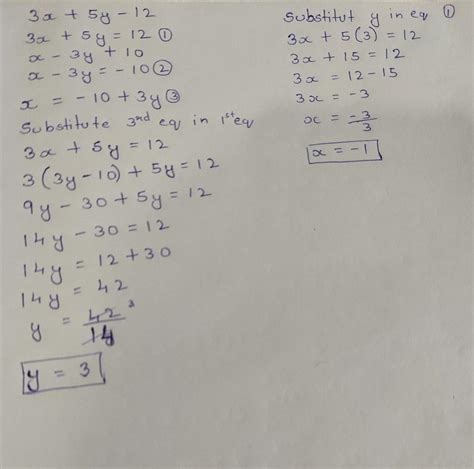 3x + 5y - 12
3x + 5y = 12 ①
x - 3y + 10
x - 3y = -10 ②
x = -10 + 3y ③
Substitute 3rd eq in 1st eq
3x + 5y = 12
3(3y-10) + 5y = 12
9y - 30 + 5y = 12
14y - 30 = 12
14y = 12 + 30
14y = 42
y = 42/14 3
y = 3
Substitut y in eq ①
3x + 5(3) = 12
3x + 15 = 12
3x = 12-15
3x = -3
x = -3/3
x = -1